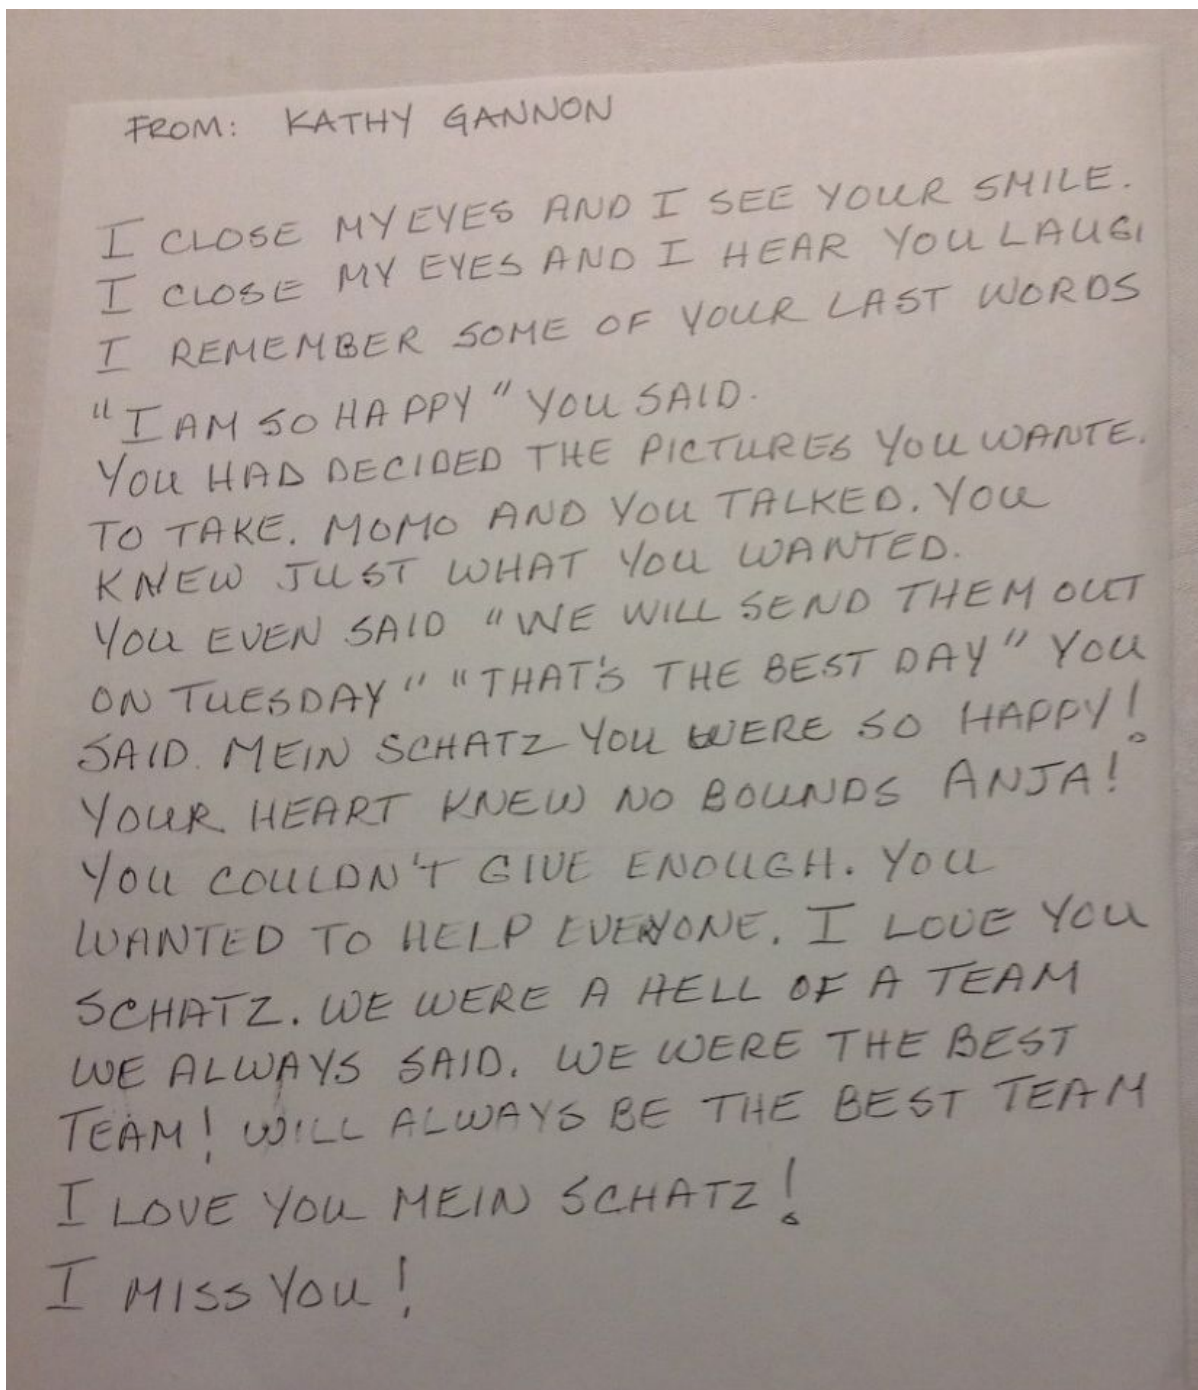 FROM: KATHY GANNON
I CLOSE MY EYES AND I SEE YOUR SMILE.
I CLOSE MY EYES AND I HEAR YOU LAUG
I REMEMBER SOME OF YOUR LAST WORDS
"I AM SO HAPPY" YOU SAID.
YOU HAD DECIDED THE PICTURES YOU WANTE
TO TAKE. MOMO AND YOU TALKED. YOU
KNEW JUST WHAT YOU WANTED.
YOU EVEN SAID "WE WILL SEND THEM OUT
ON TUESDAY" "THAT'S THE BEST DAY" YOU
SAID. MEIN SCHATZ YOU WERE SO HAPPY!
YOUR HEART KNEW NO BOUNDS ANJA!
YOU COULDN'T GIVE ENOUGH. YOU
WANTED TO HELP EVERYONE. I LOVE YOU
SCHATZ. WE WERE A HELL OF A TEAM
WE ALWAYS SAID. WE WERE THE BEST
TEAM! WILL ALWAYS BE THE BEST TEAM
I LOVE YOU MEIN SCHATZ!
I MISS YOU!